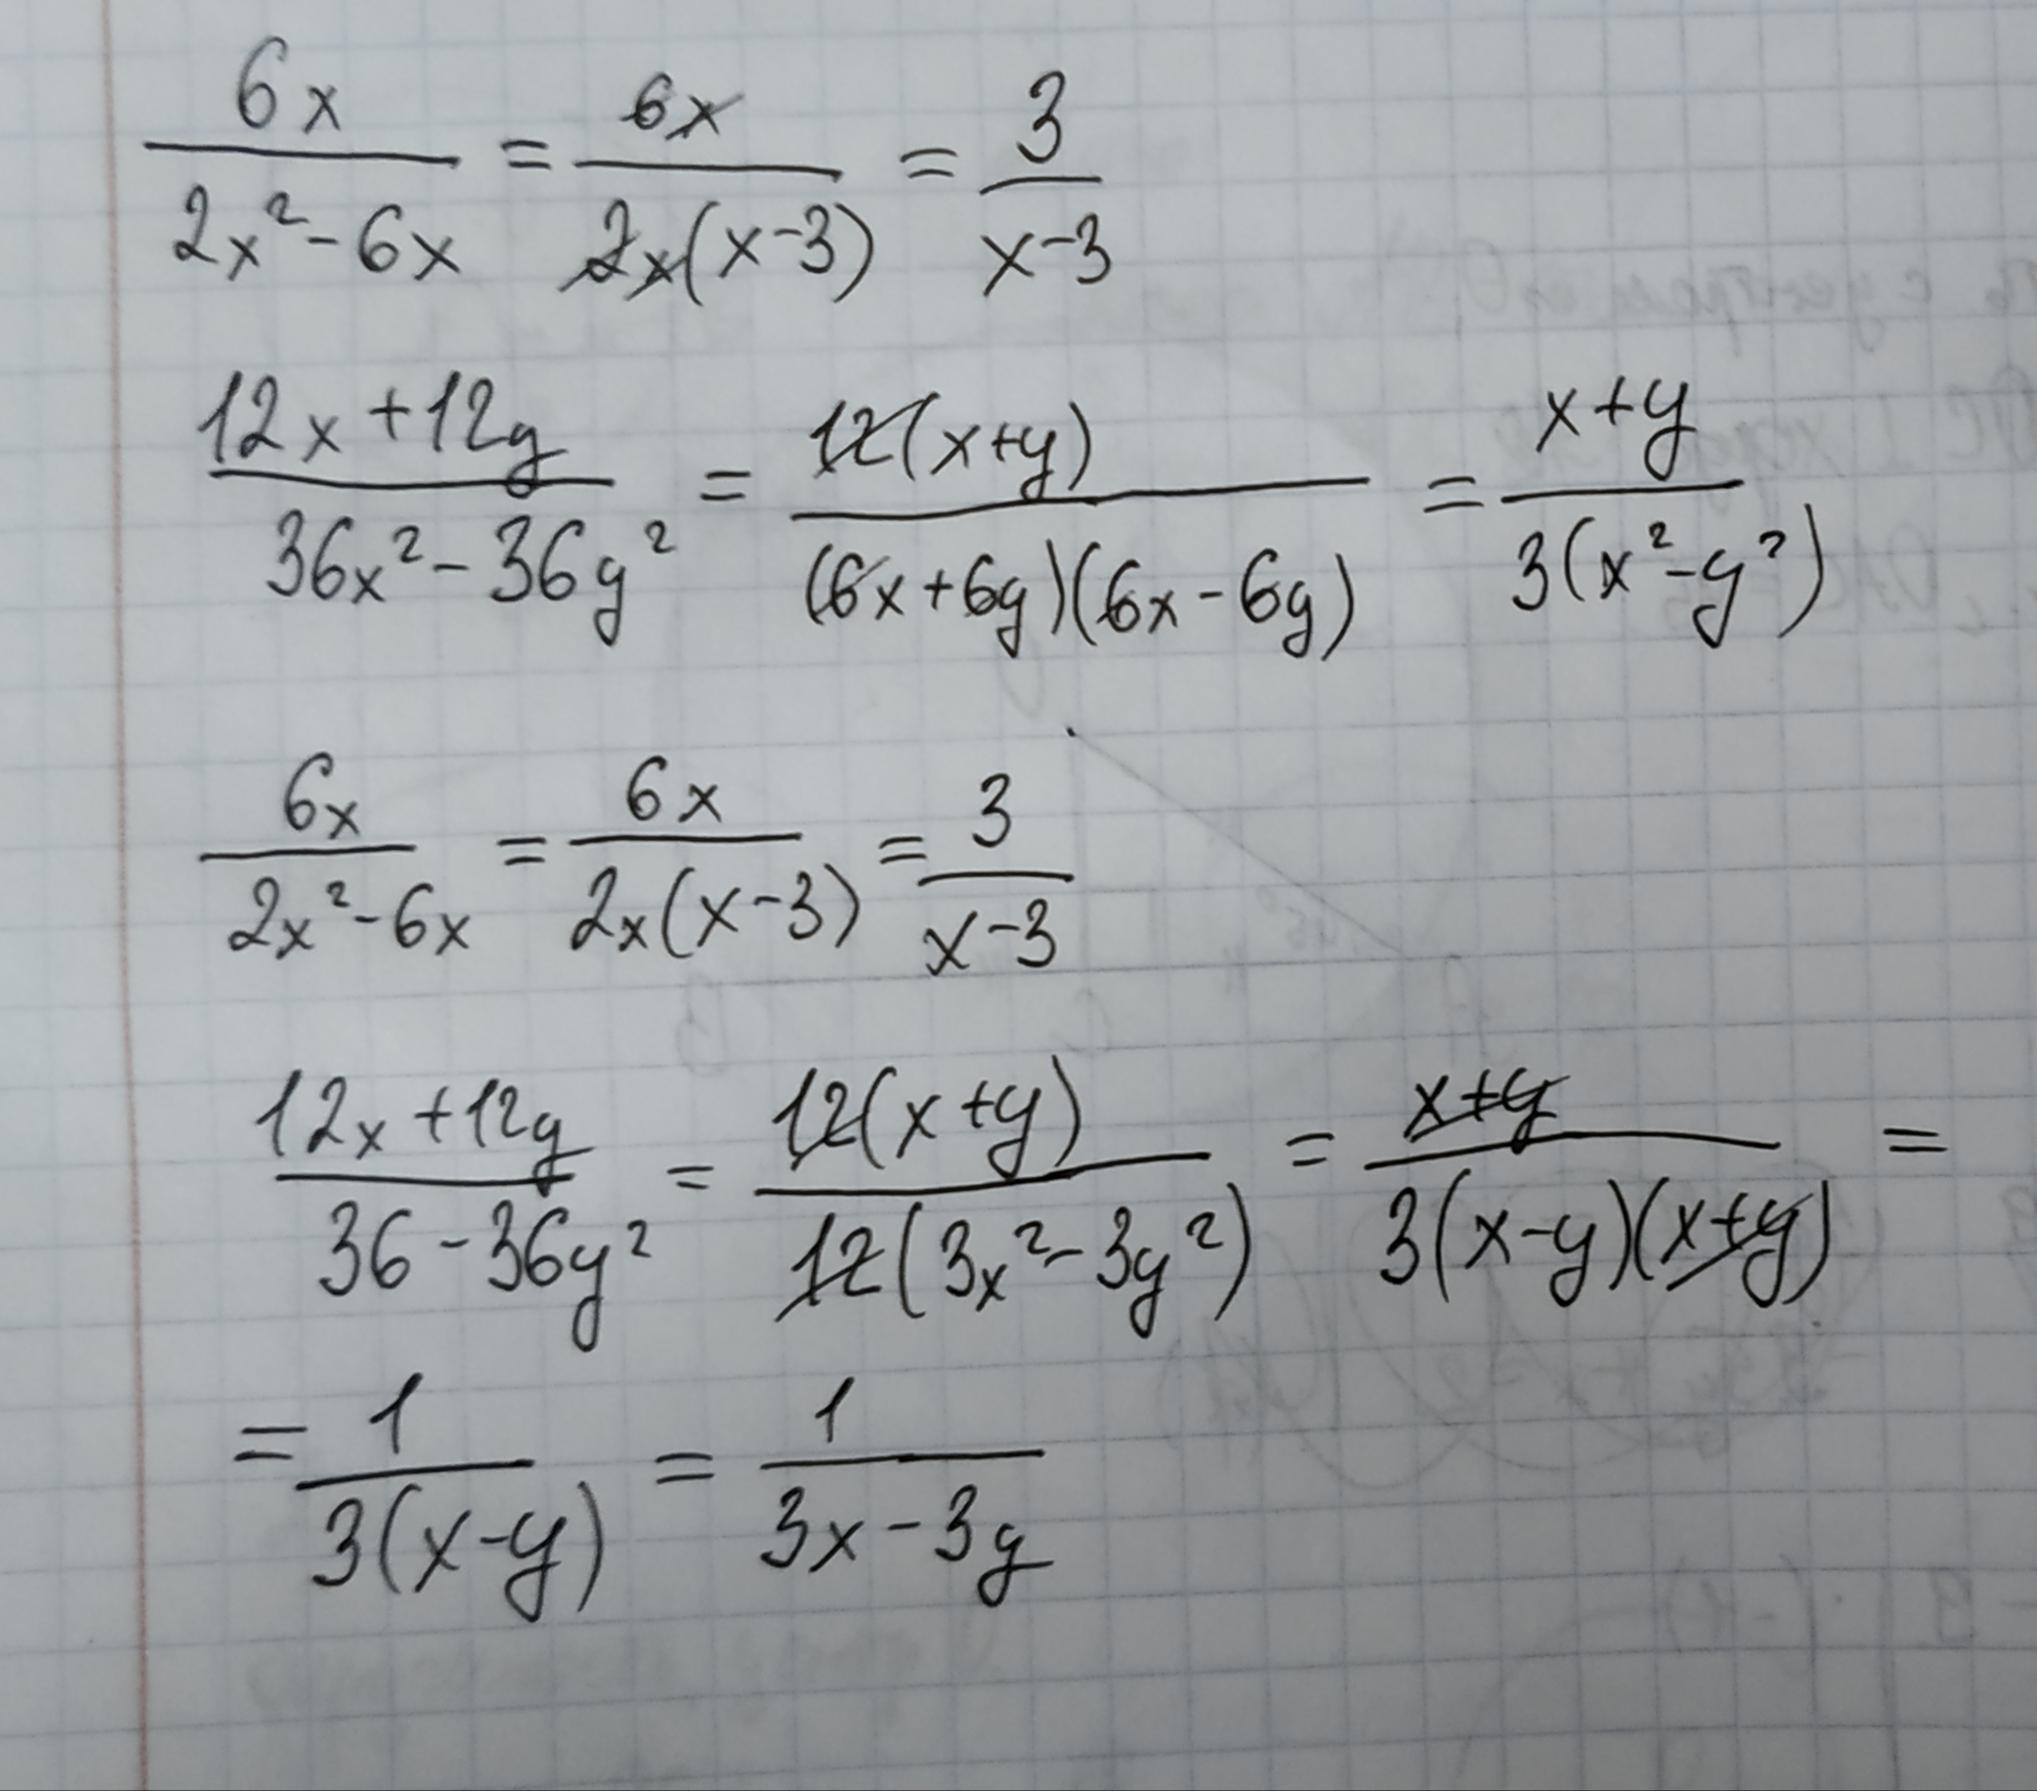 6x/(2x²-6x) = 6x/(2x(x-3)) = 3/(x-3)
(12x+12y)/(36x²-36y²) = 12(x+y)/((6x+6y)(6x-6y)) = (x+y)/(3(x²-y²))
6x/(2x²-6x) = 6x/(2x(x-3)) = 3/(x-3)
(12x+12y)/(36-36y²) = 12(x+y)/(12(3x²-3y²)) = (x+y)/(3(x-y)(x+y)) =
= 1/(3(x-y)) = 1/(3x-3y)